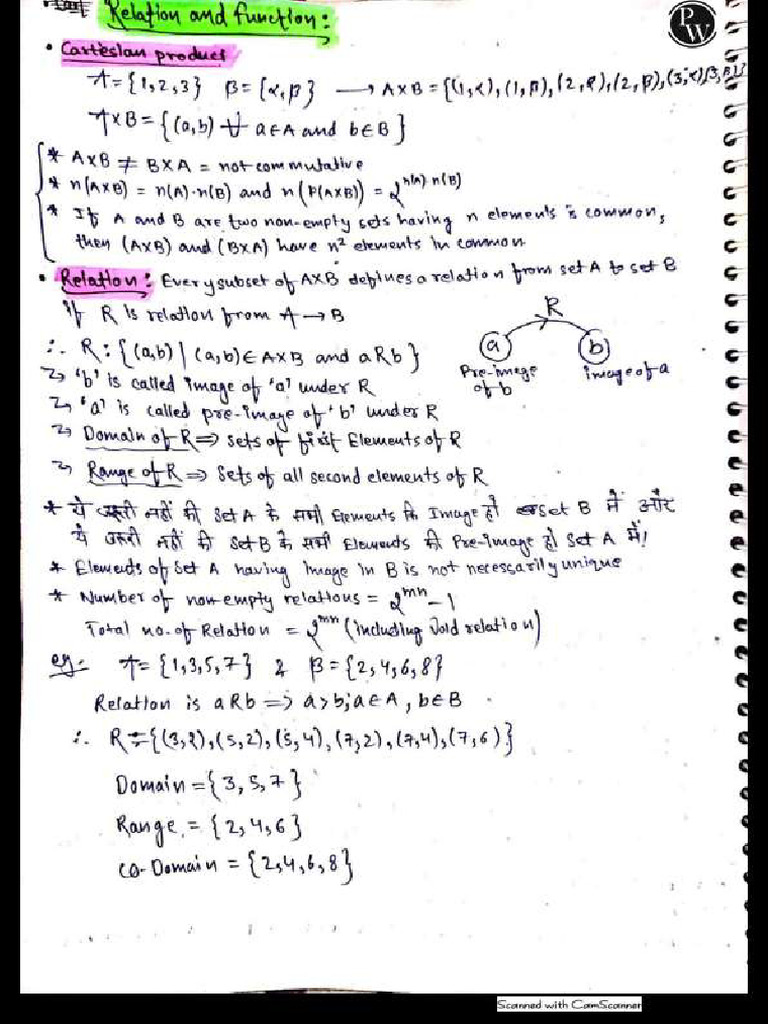 Relation and function:
PW
• Cartesian product
A = {1,2,3} B = {α,β} → A×B = {(1,α),(1,β),(2,α),(2,β),(3,α)(3,β)}
A×B = {(a,b) ∀ a∈A and b∈B}
* A×B ≠ B×A = not commutative
* n(A×B) = n(A)·n(B) and n(P(A×B)) = 2^n(A)·n(B)
* If A and B are two non-empty sets having n elements is common,
then (A×B) and (B×A) have n² elements in common
• Relation: Every subset of A×B defines a relation from set A to set B
If R is relation from A → B
R
∴ R: {(a,b) | (a,b)∈A×B and aRb}
a b
Pre-image of b
image of a
→ 'b' is called image of 'a' under R
→ 'a' is called pre-image of 'b' under R
→ Domain of R ⇒ sets of first Elements of R
→ Range of R ⇒ Sets of all second elements of R
* ये जरूरी नहीं की Set A के सभी Elements कि Image हो Set B में और
ये जरूरी नहीं की Set B के सभी Elements की Pre-image हो Set A में!
* Elements of Set A having image in B is not necessarily unique
* Number of non-empty relations = 2^mn - 1
Total no. of Relation = 2^mn (including Void relation)
eg:- A = {1,3,5,7} & B = {2,4,6,8}
Relation is aRb ⇒ a>b; a∈A, b∈B
∴ R = {(3,2),(5,2),(5,4),(7,2),(7,4),(7,6)}
Domain = {3,5,7}
Range = {2,4,6}
co-Domain = {2,4,6,8}
Scanned with CamScanner